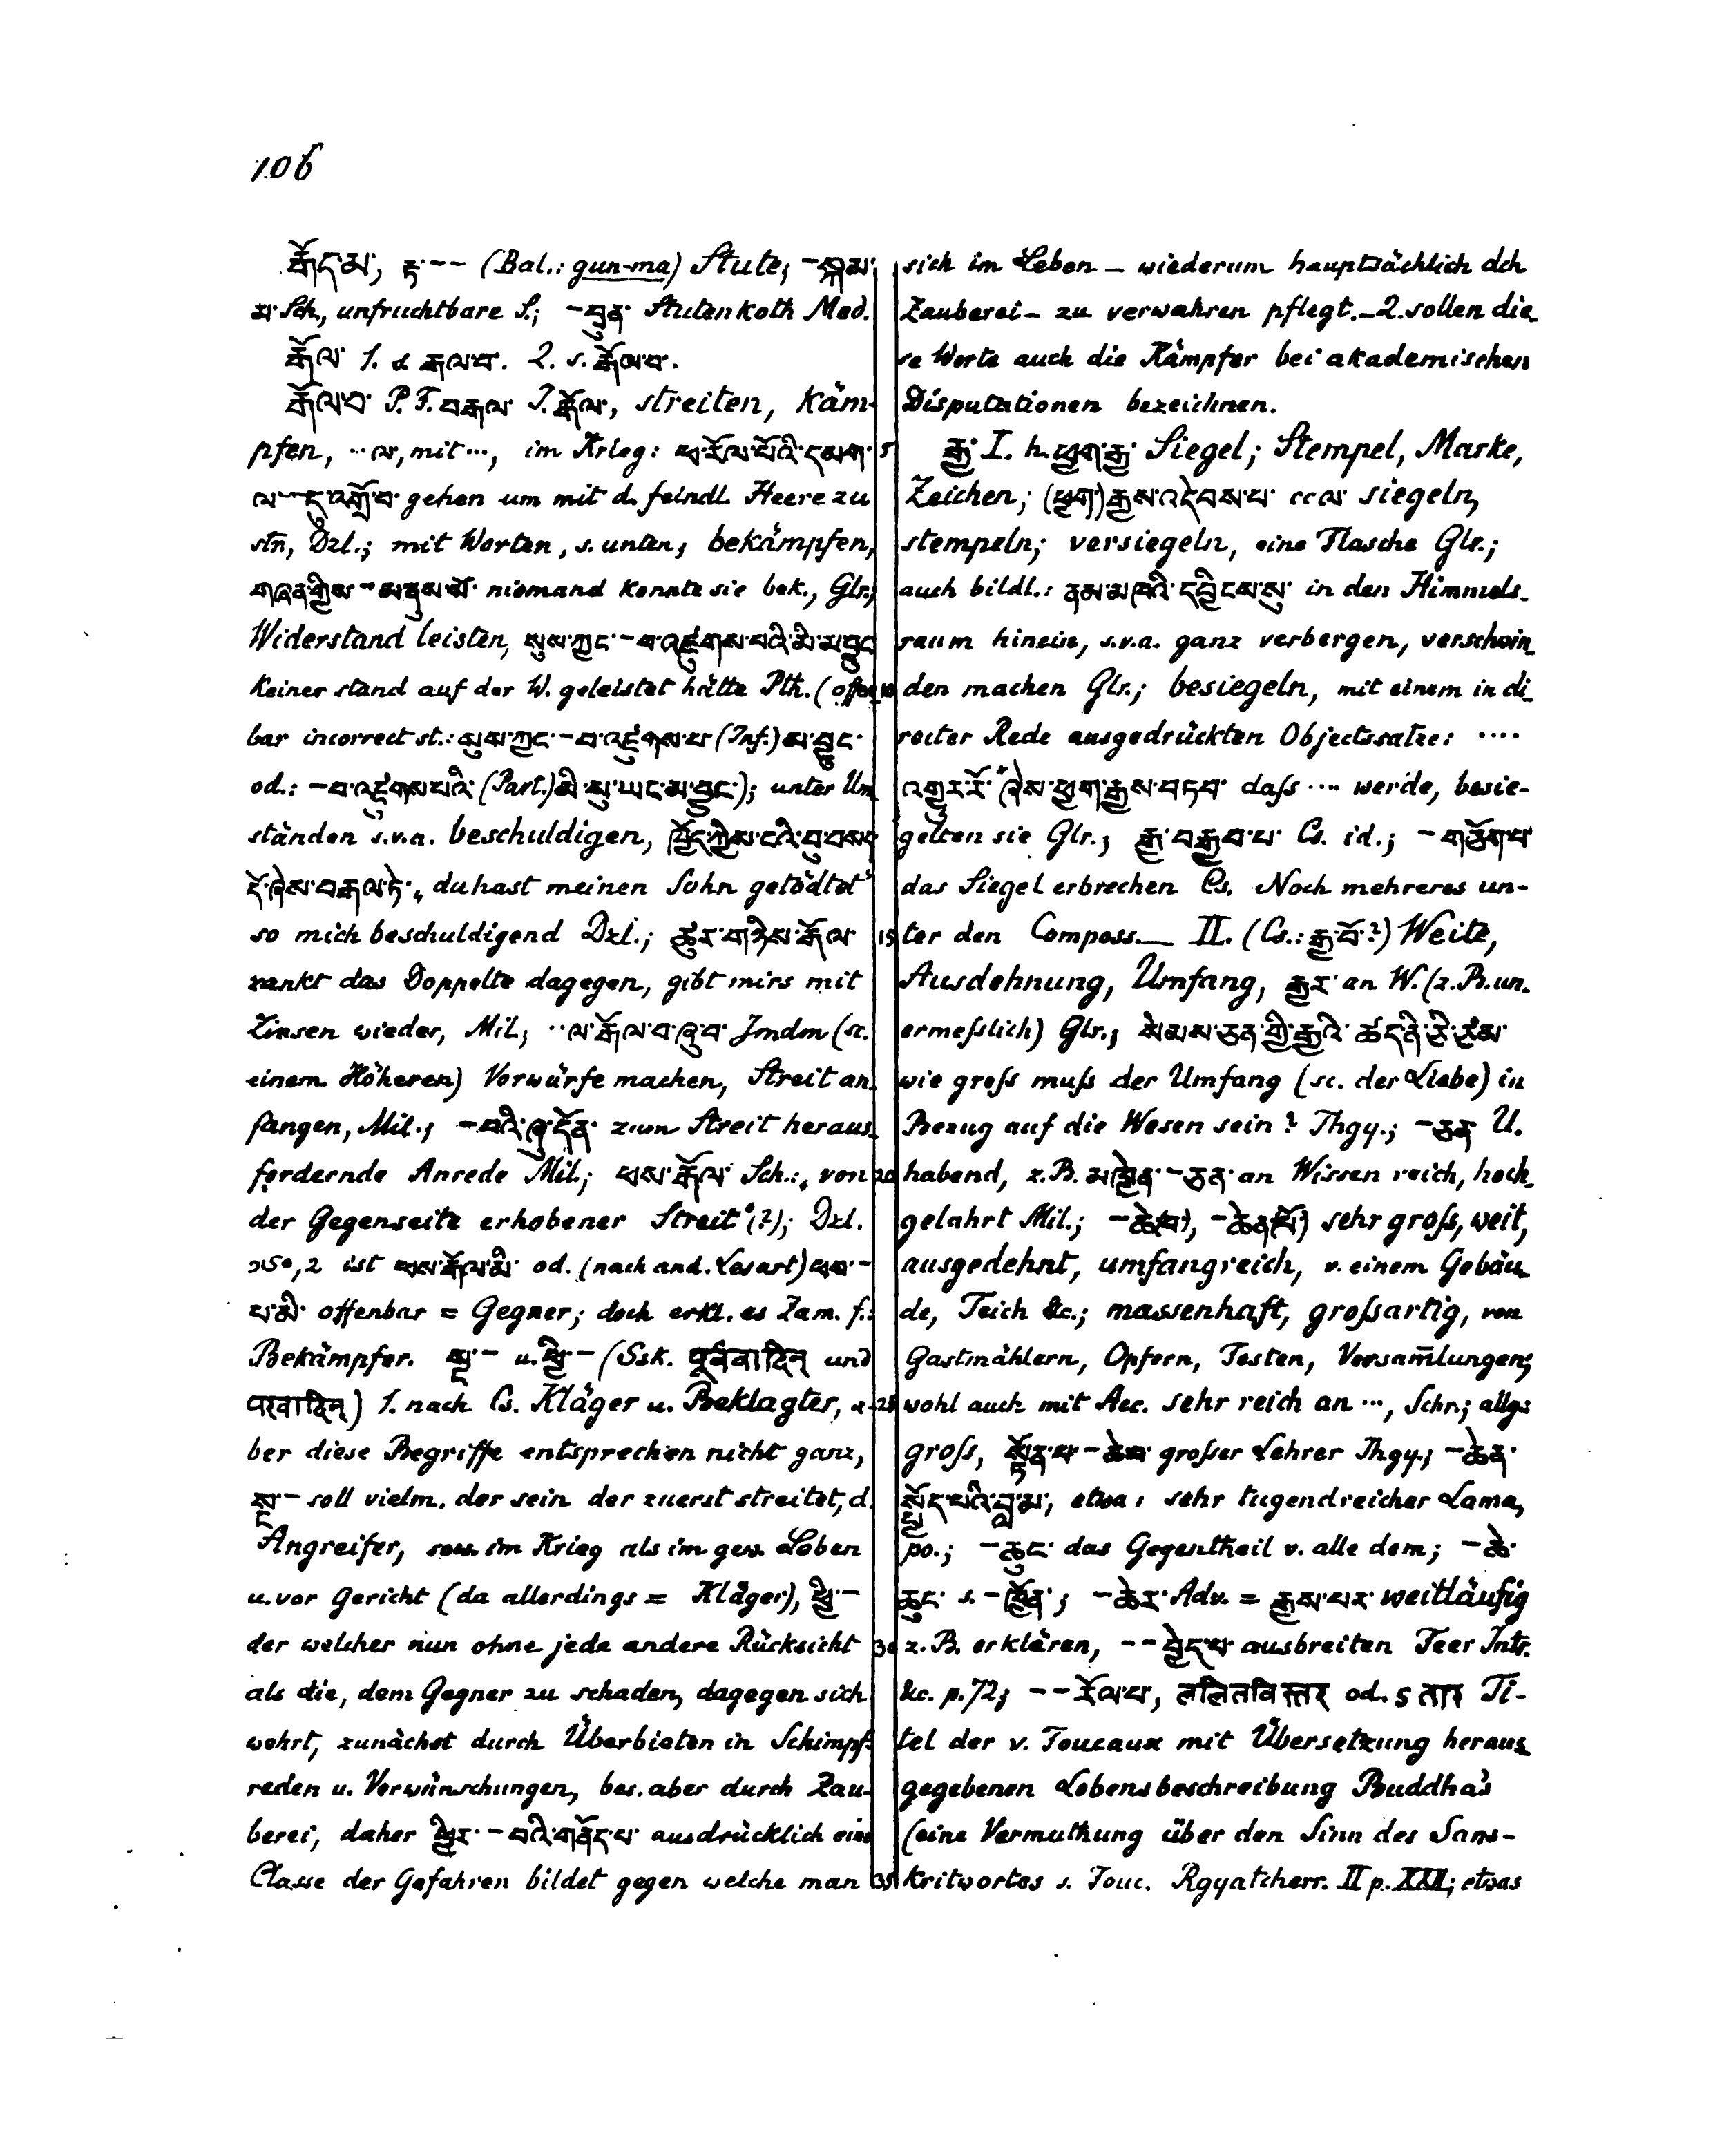 106
རྒོད་མ་, རྟ་-- (Bal.: gun-ma) Stute; -སྐམ་
མ་ Sch., unfruchtbare S.; -བྲུན་ Stutenkoth Med.
རྒོལ་ 1. d རྒལ་བ་. 2. s. རྒོལ་བ་.
རྒོལ་བ་ P. F. བརྒལ་ I. རྒོལ་, streiten, käm-
pfen, ··ལ་, mit ···, im Krieg: ཕ་རོལ་པོའི་དམག་
ལ་-དུ་འགྲོ་བ་ gehen um mit d. feindl. Heere zu
stn, Dzl.; mit Worten, s. unten; bekämpfen,
གཞན་གྱིས་-མ་ནུས་སོ་ niemand konnte sie bek., Glr.;
Widerstand leisten, སུས་ཀྱང་-བ་འཛུགས་པའི་མི་མ་བྱུང
keiner stand auf der W. geleistet hätte Pth. (offen-
bar incorrect st.: སུས་ཀྱང་-བ་འཛུགས་པ་ (Inf.) མ་བྱུང་
od.: -བ་འཛུགས་པའི་ (Part.) མི་སུ་ཡང་མ་བྱུང་); unter Um
ständen s.v.a. beschuldigen, ཁྱོད་ཀྱིས་ངའི་བུ་བསད
དོ་ཞེས་བརྒལ་ཏེ་ „du hast meinen Sohn getödtet“
so mich beschuldigend Dzl.; ཚུར་གཉིས་རྒོལ་
zankt das Doppelte dagegen, gibt mirs mit
Zinsen wieder, Mil; ··ལ་རྒོལ་བ་ཞུ་བ་ Jmdm (sc.
einem Höheren) Vorwürfe machen, Streit an-
fangen, Mil.; -བའི་ཞུ་དོན་ zum Streit heraus-
fordernde Anrede Mil.; ཕས་རྒོལ་ Sch.: „von
der Gegenseite erhobener Streit“ (?); Dzl.
250,2 ist ཕས་རྒོལ་མི་ od. (nach and. Lesart) ཕབ་-
པ་མི་ offenbar = Gegner; doch erkl. es Zam. f.:
Bekämpfer. སྔ་- u. ཕྱི་- (Ssk. पूर्ववादिन् und
परवादिन्) 1. nach Cs. Kläger u. Beklagter, a-
ber diese Begriffe entsprechen nicht ganz,
སྔ་- soll vielm. der sein der zuerst streitet, d.
Angreifer, sow. im Krieg als im gew. Leben
u. vor Gericht (da allerdings = Kläger), ཕྱི་-
der welcher nun ohne jede andere Rücksicht
als die, dem Gegner zu schaden, dagegen sich
wehrt, zunächst durch Überbieten in Schimpf-
reden u. Verwünschungen, bes. aber durch Zau-
berei, daher ཕྱིར་-བའི་གནོད་པ་ ausdrücklich eine
Classe der Gefahren bildet gegen welche man
5
10
15
20
25
30
35
sich im Leben – wiederum hauptsächlich dch
Zauberei – zu verwahren pflegt. – 2. sollen die-
se Worte auch die Kämpfer bei akademischen
Disputationen bezeichnen.
རྒྱ་ I. h. ཕྱག་རྒྱ་ Siegel; Stempel, Marke,
Zeichen; (ཕྱག་)རྒྱས་འདེབས་པ་ cc ལ་ siegeln,
stempeln; versiegeln, eine Flasche Glr.;
auch bildl.: ནམ་མཁའི་དབྱིངས་སུ་ in den Himmels-
raum hinein, s.v.a. ganz verbergen, verschwin-
den machen Glr.; besiegeln, mit einem in di-
recter Rede ausgedrückten Objectssatze: ····
འགྱུར་རོ་“ཞེས་ཕྱག་རྒྱས་བཏབ་ dass ···· werde, besie-
gelten sie Glr.; རྒྱ་བརྒྱབ་པ་ Cs. id.; -གཅོག་པ་
das Siegel erbrechen Cs. Noch mehreres un-
ter den Composs. — II. (Cs.: རྒྱ་བོ་?) Weite,
Ausdehnung, Umfang, རྒྱར་ an W. (z.B. un-
ermesslich) Glr.; སེམས་ཅན་གྱི་རྒྱའི་ཚད་ནི་ཅི་ཙམ་
wie gross muss der Umfang (sc. der Liebe) in
Bezug auf die Wesen sein? Thgy.; -ཅན་ U.
habend, z.B. མཁྱེན་-ཅན་ an Wissen reich, hoch-
gelahrt Mil.; -ཆེ(བ་), -ཆེན(པོ་) sehr gross, weit,
ausgedehnt, umfangreich, v. einem Gebäu-
de, Teich &c.; massenhaft, grossartig, von
Gastmählern, Opfern, Festen, Versam̄lungen;
wohl auch mit Acc. sehr reich an ···, Schr.; allg.:
gross, སྟོན་པ་-ཆེབ་ grosser Lehrer Thgy.; -ཆེན་
སྤྱོད་པའི་བླ་མ་, etwa: sehr tugendreicher Lama,
po.; -ཆུང་ das Gegentheil v. alle dem; -ཆེ་
ཆུང་ s. -ཁྱོན་; -ཆེར་ Adv. = རྒྱས་པར་ weitläufig
z.B. erklären, --བྱེད་པ་ ausbreiten Feer Intr.
&c. p. 72; --རོལ་པ་, ललितविस्तर od. ऽतार Ti-
tel der v. Foucaux mit Übersetzung heraus-
gegebenen Lebensbeschreibung Buddha's
(eine Vermuthung über den Sinn des Sans-
kritwortes s. Fouc. Rgyatcherr. II p. XXII; etwas